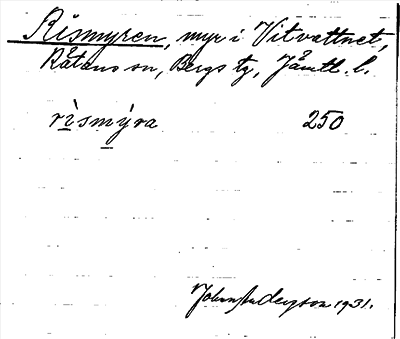 Rismyren, myr i Vitvattnet,
Råtans sn, Bergs tg, Jämtl. l.
rìsmýra 250
John Anderson 1931.